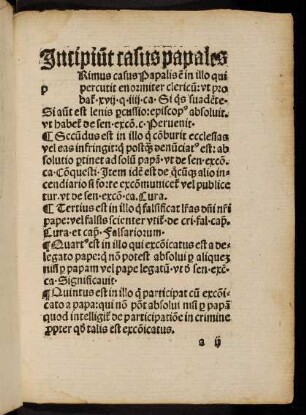 Incipiūt casus papales
p Rimus casus Papalis ē in illo qui
percutit enormiter clericū: vt pro
bat᷑. xvij. q. iiij. ca. Si q̄s suadēte.
Si aūt est lenis ꝑcussio: episcopꝰ absoluit.
vt habet᷑ de sen. excō. c. Peruenit.
¶ Secūdus est in illo q̄ cōburit ecclesias
vel eas infringit: q̄ postq̄ denūciatꝰ est: ab
solutio ꝑtinet ad solū papā. vt de sen. excō.
ca. Cōquesti. Item idē est de q̄cūqꝫ alio in
cendiario si forte excōmunicet᷑ vel publice
tur. vt de sen. excō. ca. Tua.
¶ Tertius est in illo q̄ falsificat lr̄as dn̄i nr̄i
pape: vel falsis scienter vtit᷑. de cri. fal. cap̄.
Dura. et cap̄. Falsariorum.
¶ Quartꝰ est in illo qui excōicatus est a de
legato pape: q̄ nō potest absolui ꝑ aliquez
nisi ꝑ papam vel pape legatū. vt d̄ sen. excō.
ca. Significauit.
¶ Quintus est in illo q̄ participat cū excōi
cato a papa: qui nō pōt absolui nisi ꝑ papā
quod intelligit᷑ de participatiōe in crimine
ꝓpter qd̄ talis est excōicatus.
a ij